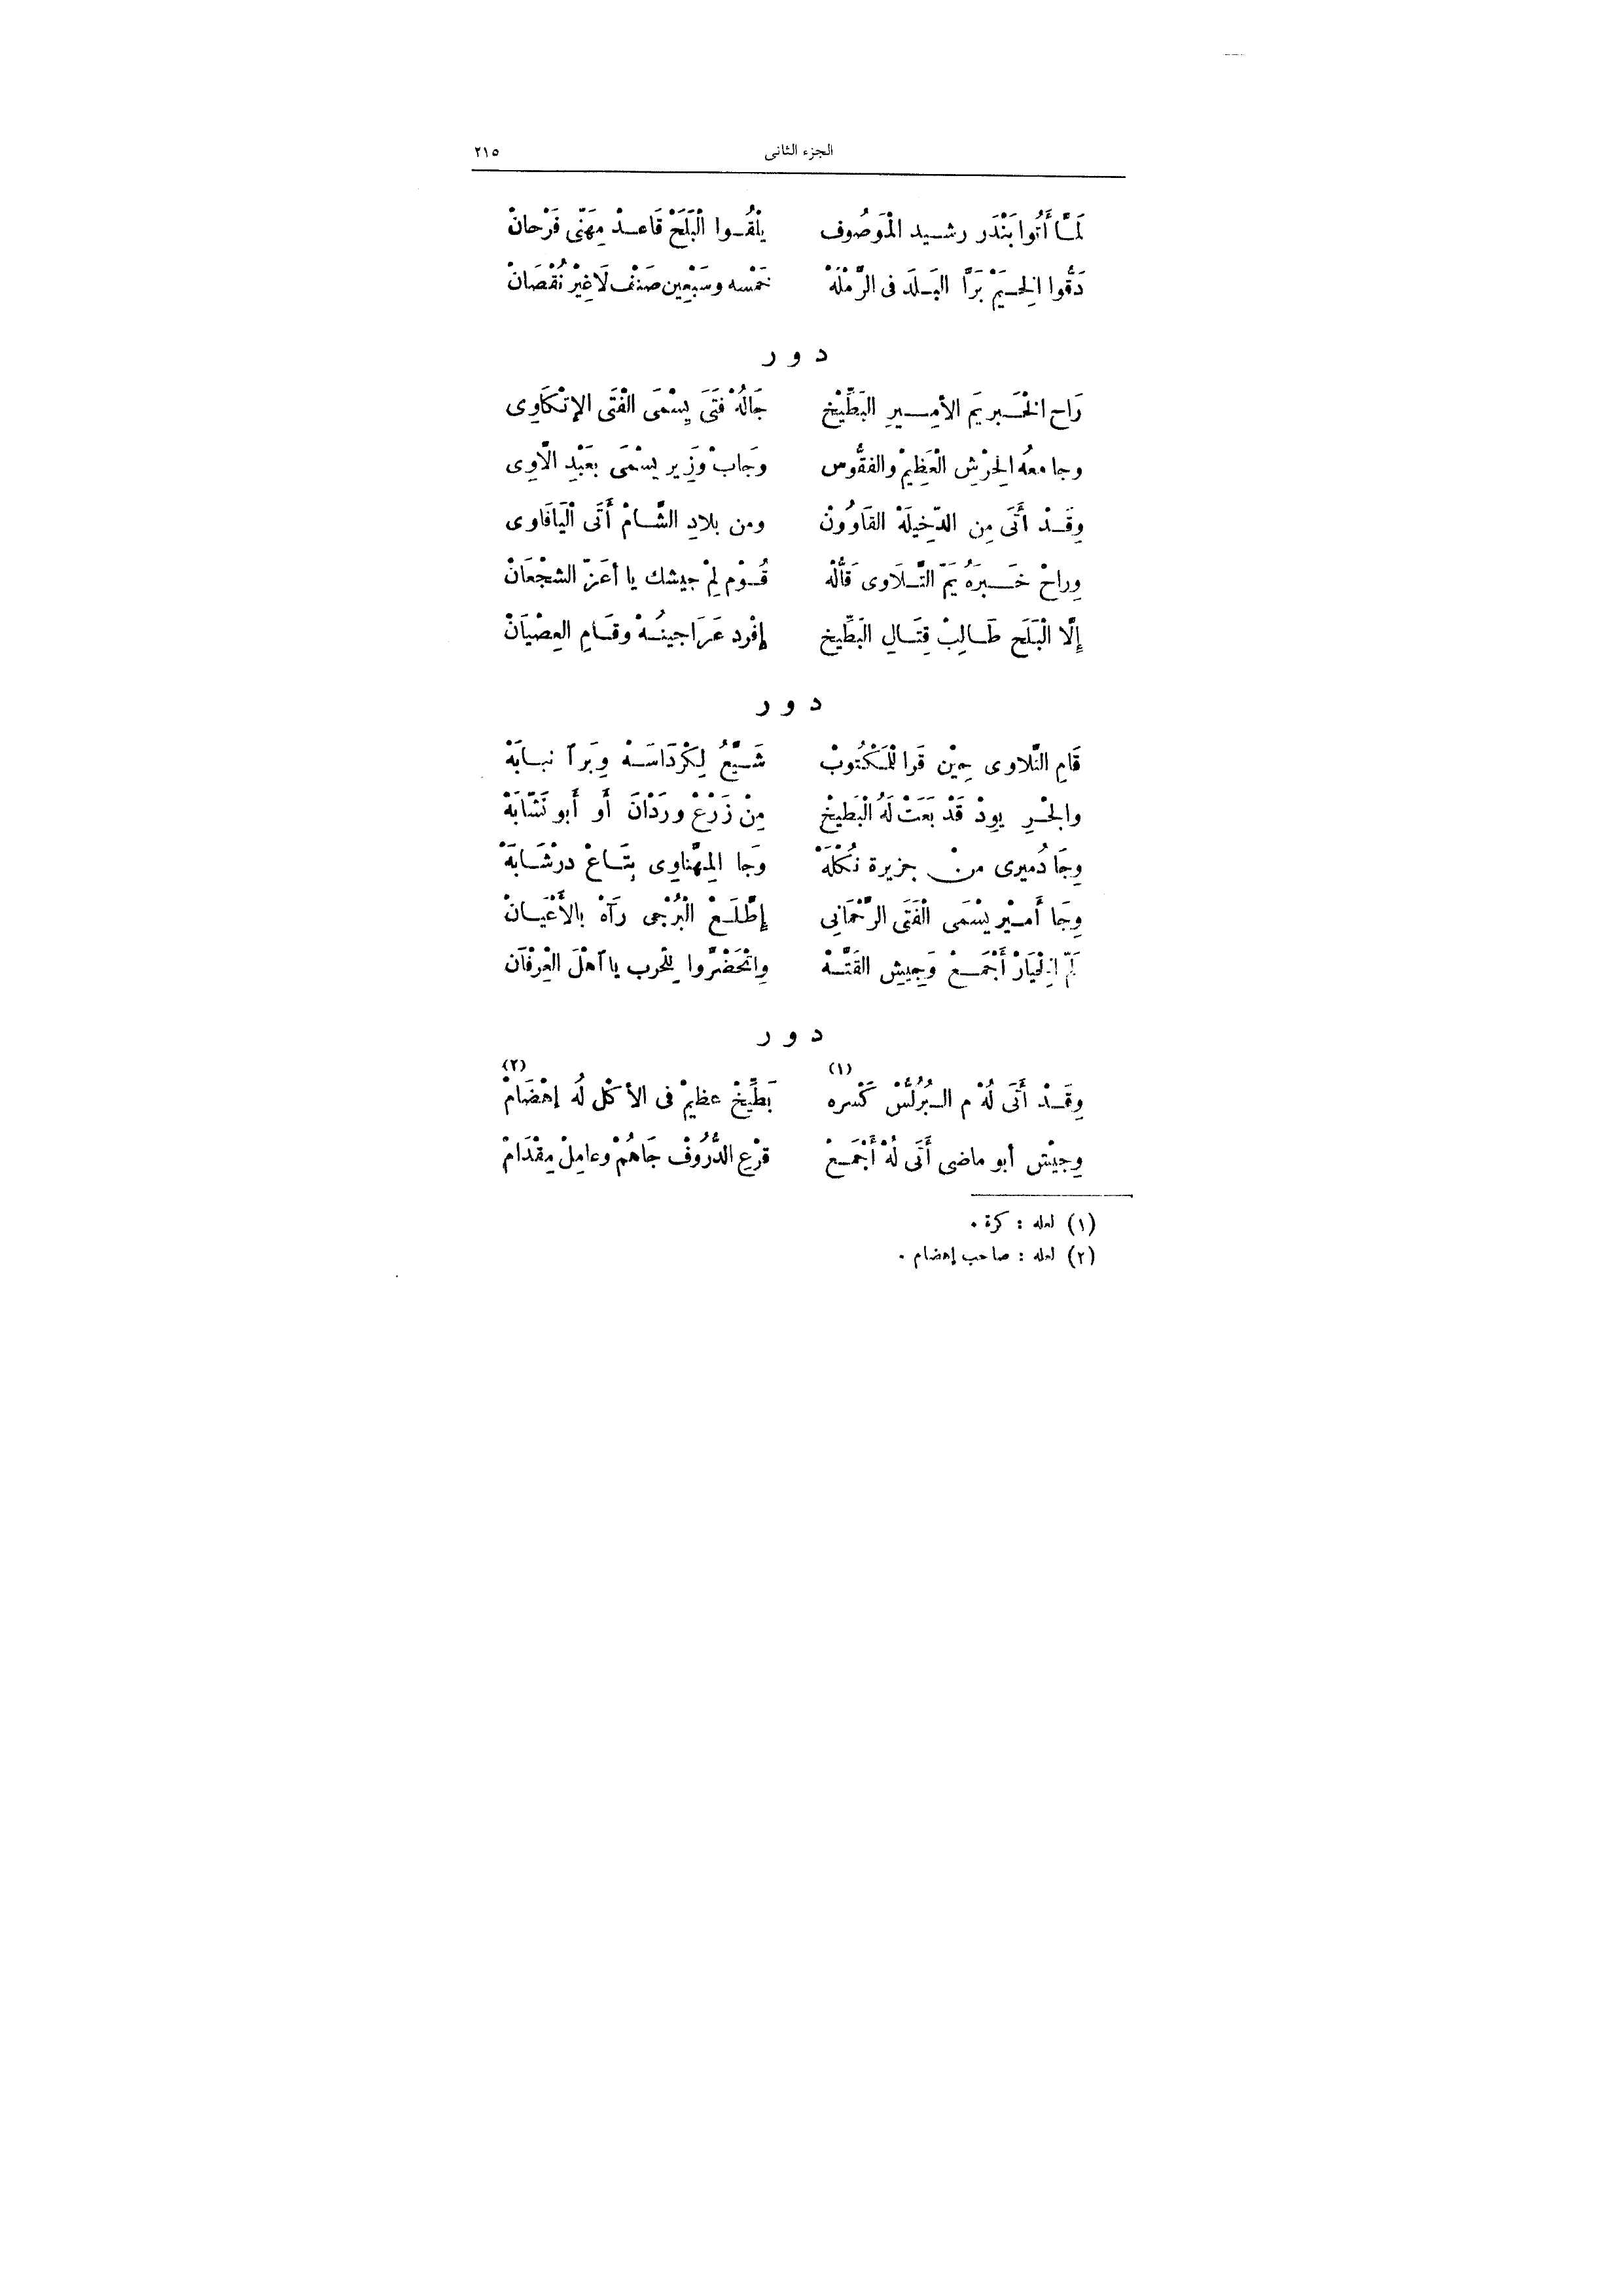 الجزء الثانى ٢١٥
لَمَّا أَتُوا بَنْدَر رشيد الْمَوصُوف يِلْقُوا الْبَلَحْ قَاعدْ مِهَنّى فَرْحانْ
دَقُّوا الِخيَمْ بَرَّا البَلَد فى الرَّمْلَهْ خَمْسه وسَبْعِين صَنْف لَا غِيْر نُقْصَانْ
دور
رَاح الْخَبر يَم الأمِير البَطِّيْخ جَالُهْ فَتَى يِسْمَى الْفَتَى الإتْكَاوِى
وجا معُه الِحرْش الْعَظِيمْ والفقُّوس وجَابْ وَزِير يسْمَى بعَبْدِ الّاوِى
وِقَدْ أَتَى مِن الدّخِيلَهْ القَاوُونْ ومن بلادِ الشَّامْ أَتَى الْيَافَاوى
وِراحْ خَبَرهُ يَمّ التَّلَاوى قَالُهْ قُوْم لِمْ جيشك يا أعَزّ الشجْعَانْ
إلَّا الْبَلَح طَالِبْ قِتَالِ البَطِّيخ إفْرِد عَرَاجينُهْ وقَامِ العِصْيَانْ
دور
قَامِ التّلاوى حِيْن قَرا للْمَكْتُوبْ شَيَّعْ لِكْرْدَاسَهْ وِبَرا نبابَهْ
والْحْر يودْ قَدْ بَعَتْ لَهُ الْبَطيخْ مِنْ زَرْعْ ورَدْانَ أَو أَبو نَشّابَهْ
وِجَا دُميرى منْ جزيرة نُكْلَهْ وَجَا المِهْنَاوِى بِتَاعْ درْشَابَهْ
وِجَا أَمِيْر يسْمَى الْفَتَى الرَّحْمَانِى إطَّلَعْ الْبُرْجى رَآهْ بالأَعْيَانْ
لَمّ الِخْيَارْ أَجْمَعْ وَجِيشِ القَتَّهْ وِاتْحَضَّروا للْحَرب يا أهْلَ العِرْفَان
دور
وِقَدْ أَتَى لُهْ م البُرُلُّسْ كَسْره (١) بَطِّيخْ عظيمْ فى الأكْل لُه إهْضَامْ (٢)
وِجيْش أبو ماضى أَتَى لُهْ أَجْمَعْ قرْعِ الدُّرُوفْ جَاهُمْ وعامِلْ مِقْدَامْ
(١) لعله : كرة .
(٢) لعله : صاحب إهضام .